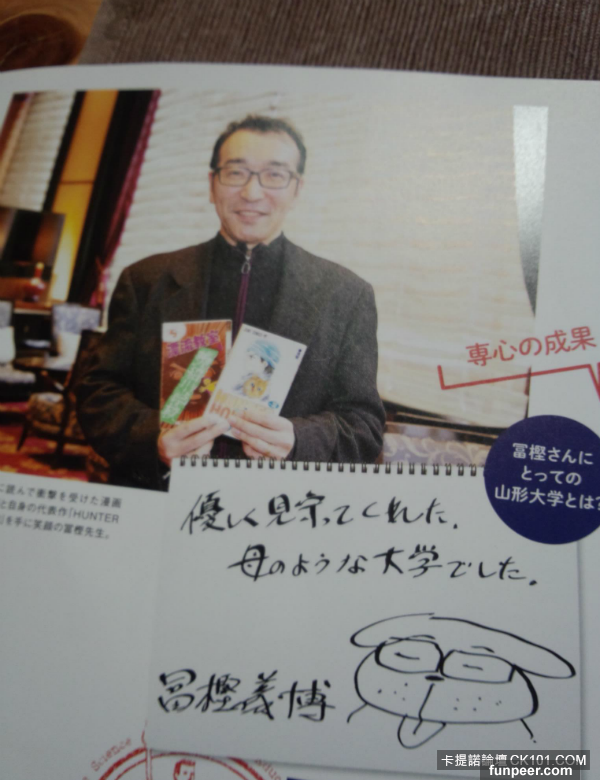 専心の成果
冨樫さんに
とっての
山形大学とは?
に読んで衝撃を受けた漫画
と自身の代表作「HUNTER
を手に笑顔の冨樫先生。
優しく見守ってくれた、
母のような大学でした。
冨樫義博
Science
卡提諾論壇 CK101.COM
funpeer.com